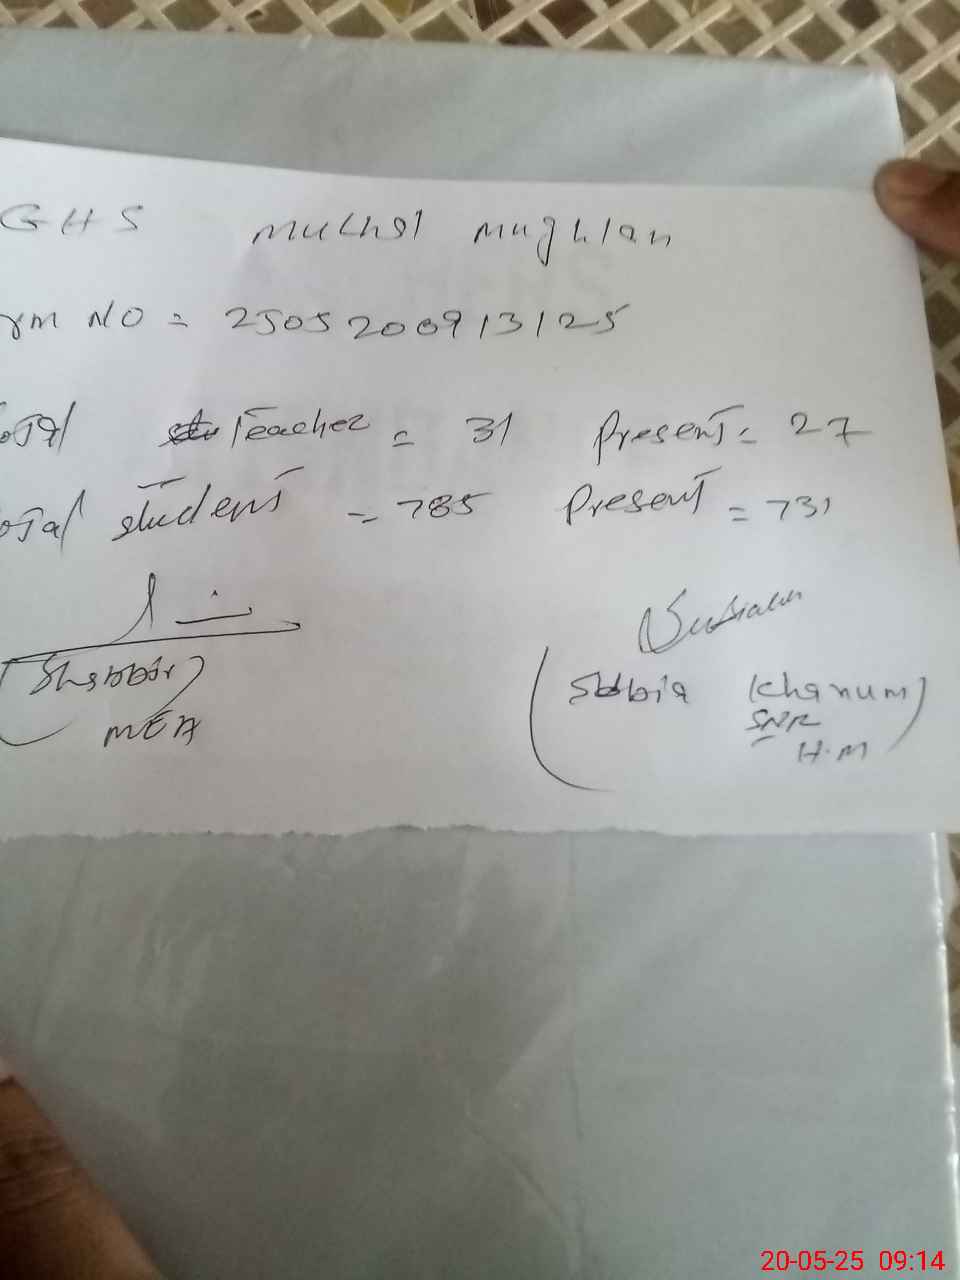 GHS Mulhal Mughlan
rm NO = 2505200913125
otal Teacher = 31 Present = 27
otal student = 785 Present = 731
(Shabbir)
MEA
(Sobia Khanum)
SNR
H.M
20-05-25 09:14